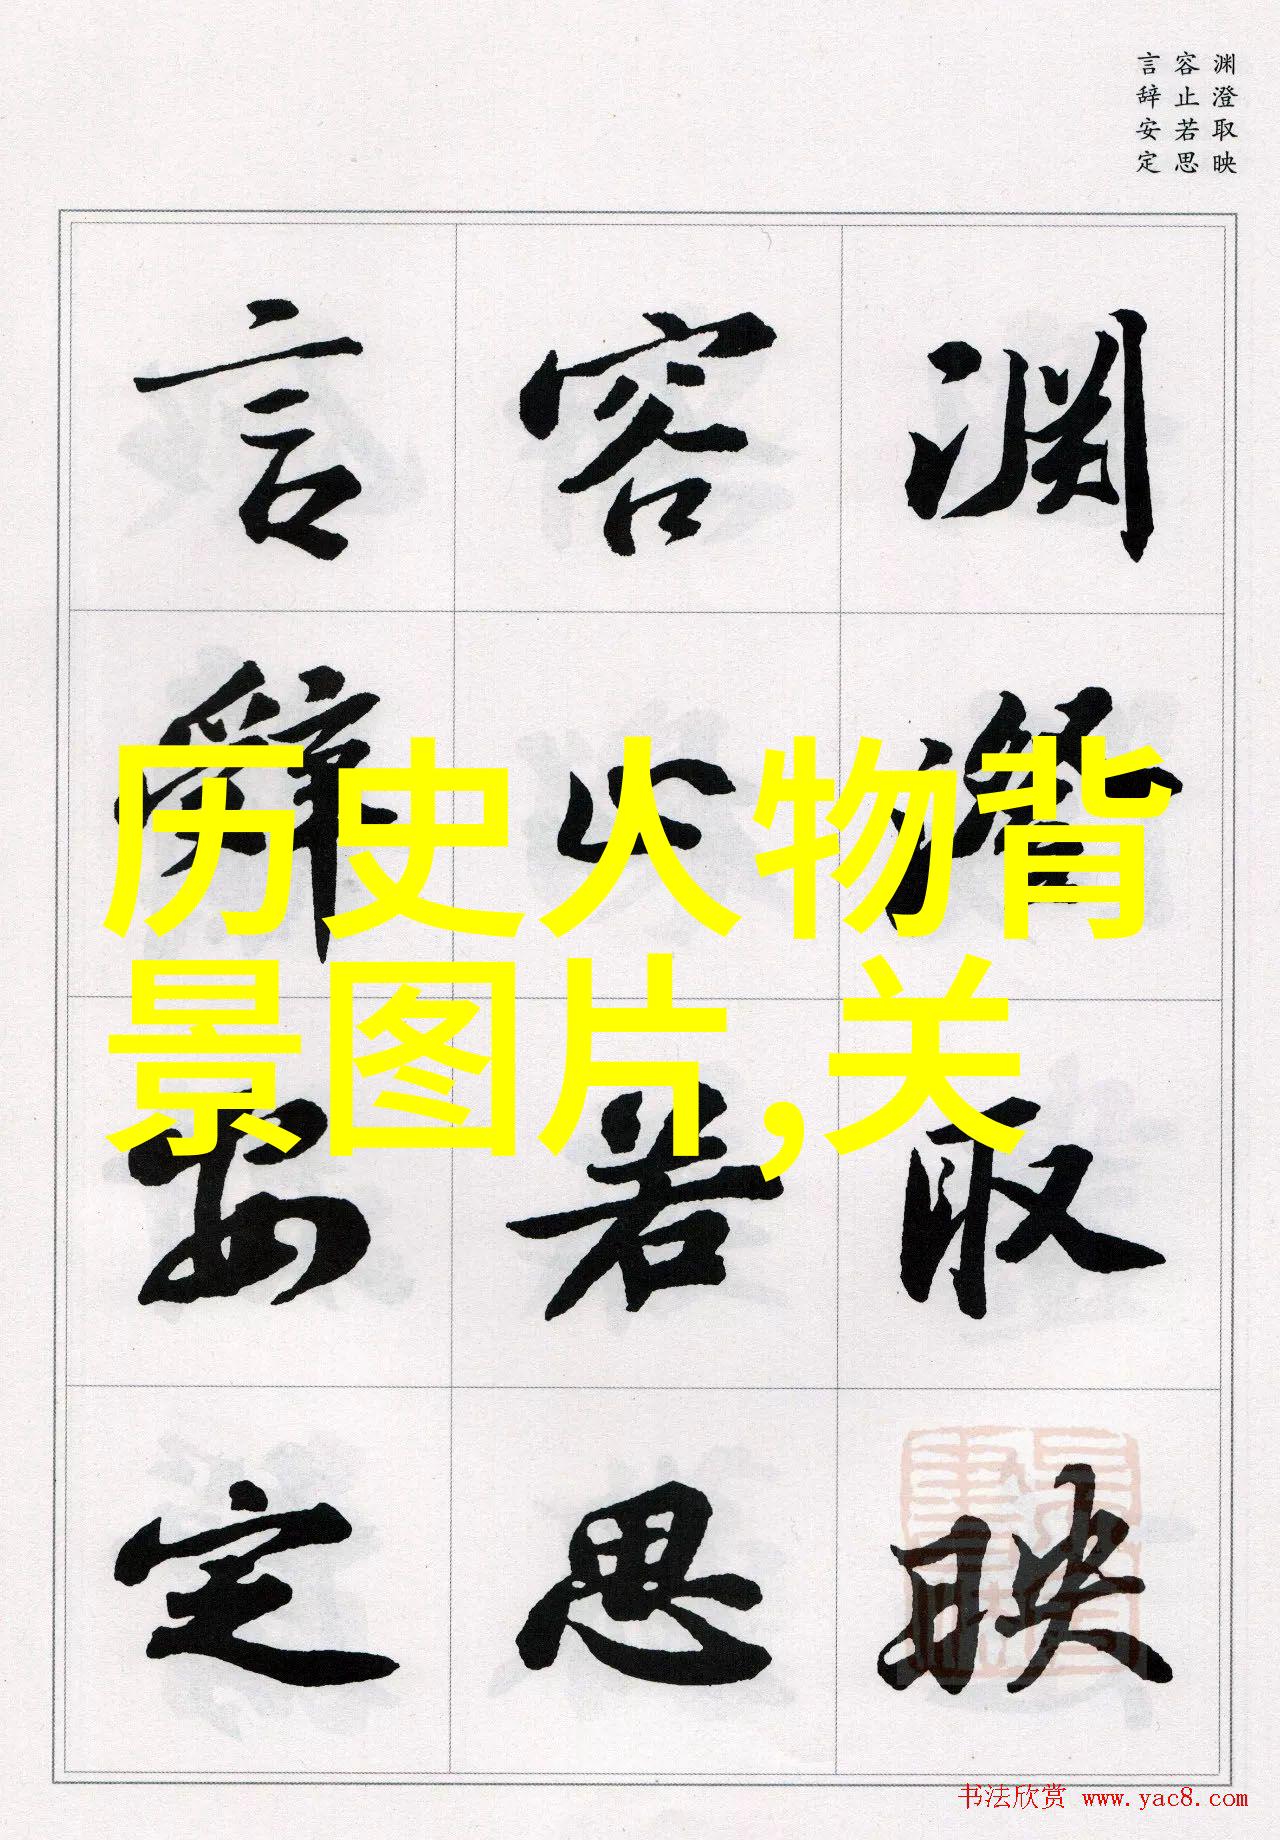 渊澄取映
容止若思
言辞安定
渊澄取映
容止若思
言辞安定
历史人物背
景图片,关
书法欣赏 www.yac8.com